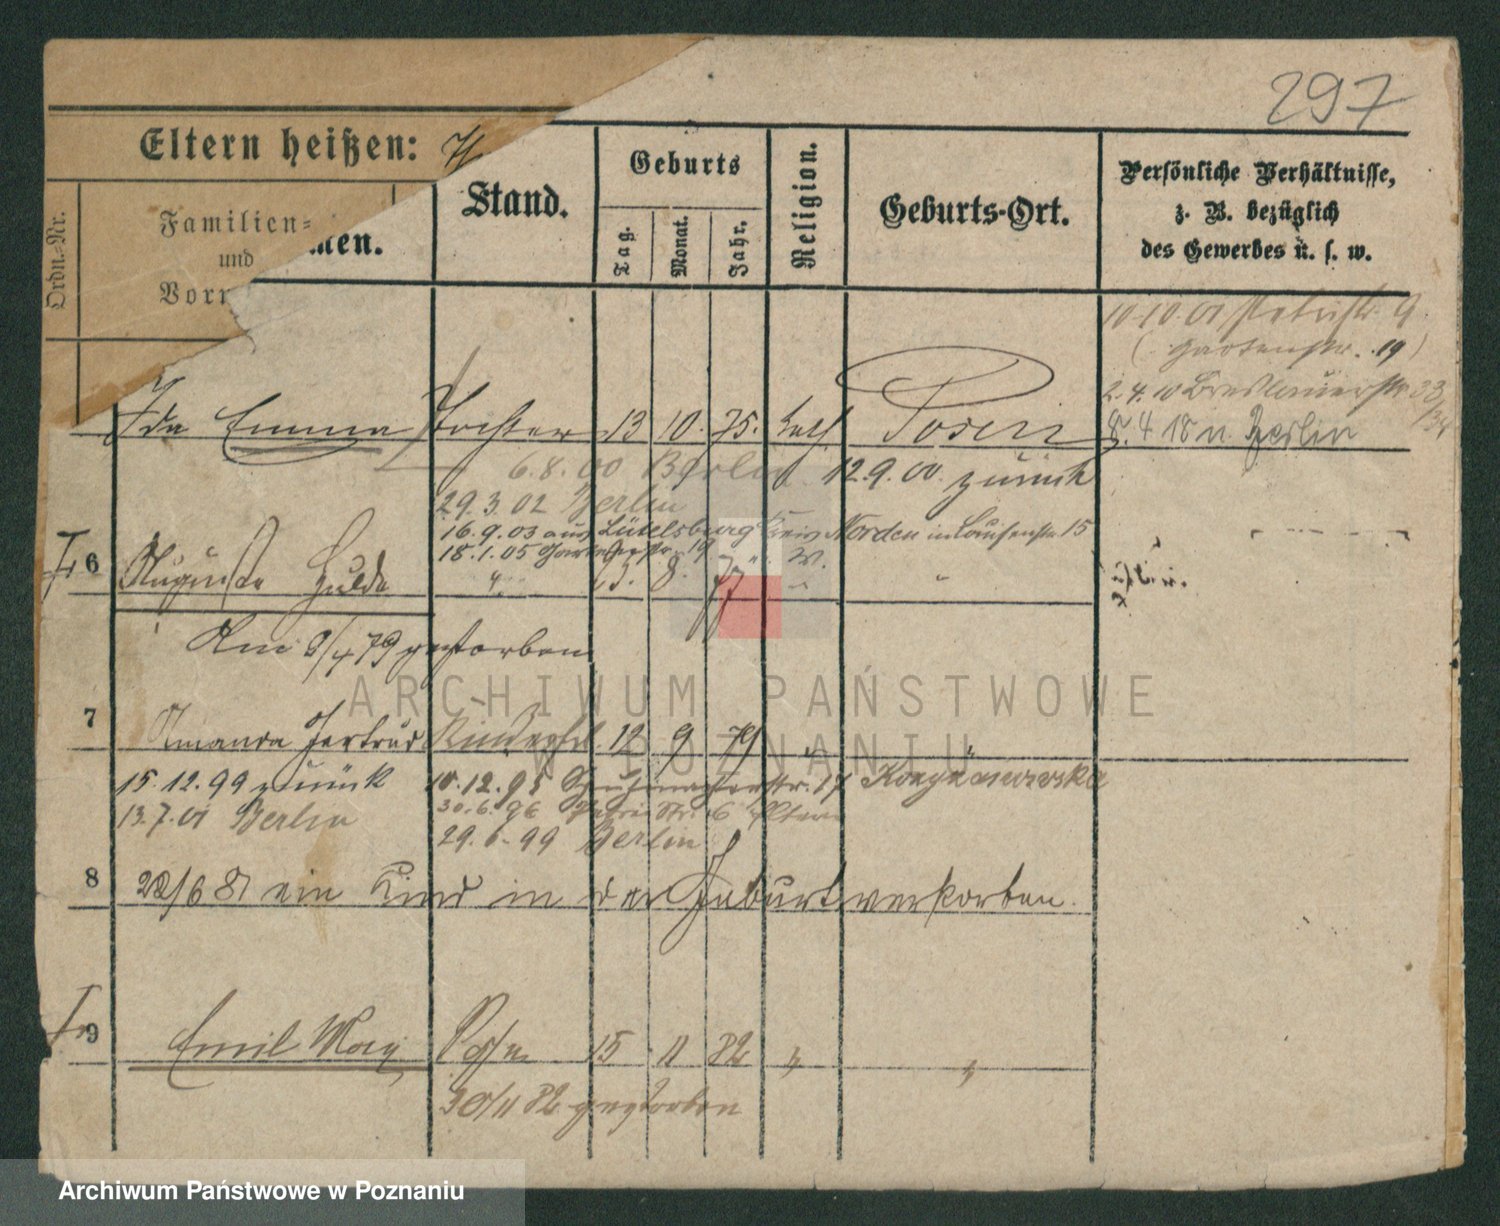 297
Eltern heißen: H
Ordn.-Nr.
Familien-
und
Vorn
men.
Stand.
Geburts
Tag.
Monat.
Jahr.
Religion.
Geburts-Ort.
Persönliche Verhältnisse,
z. B. bezüglich
des Gewerbes u. s. w.
10.10.01 Petristr. 9
(Gartenstr. 19)
2.4.10 Breslauerstr. 33/34
Ida Emma Tochter 13 10. 75. kath Posen 8.4 18 n. Berlin
6.8.00 Berlin 12.9.00. zurück
29.3.02 Berlin
16.9.03 aus Lütelsburg Kreis Norden in 15
18.1.05 Gartenstr. 19
6 Auguste Hulda " 8. 77 " "
Am 9/4 79 gestorben
7 Amanda Gertrud 12 9 79 " "
15.12.99 zurück 10.12.95 Schuhmacherstr. 17
13.7.01 Berlin 30.6.96 Petri Str. 6 Eltern
29.6.99 Berlin
8 22/6 81 ein Kind in der Geburt verstorben.
9 Emil Max Sohn 15 11 82 " "
30/11 82 gestorben
ARCHIWUM PAŃSTWOWE
W POZNANIU
Archiwum Państwowe w Poznaniu